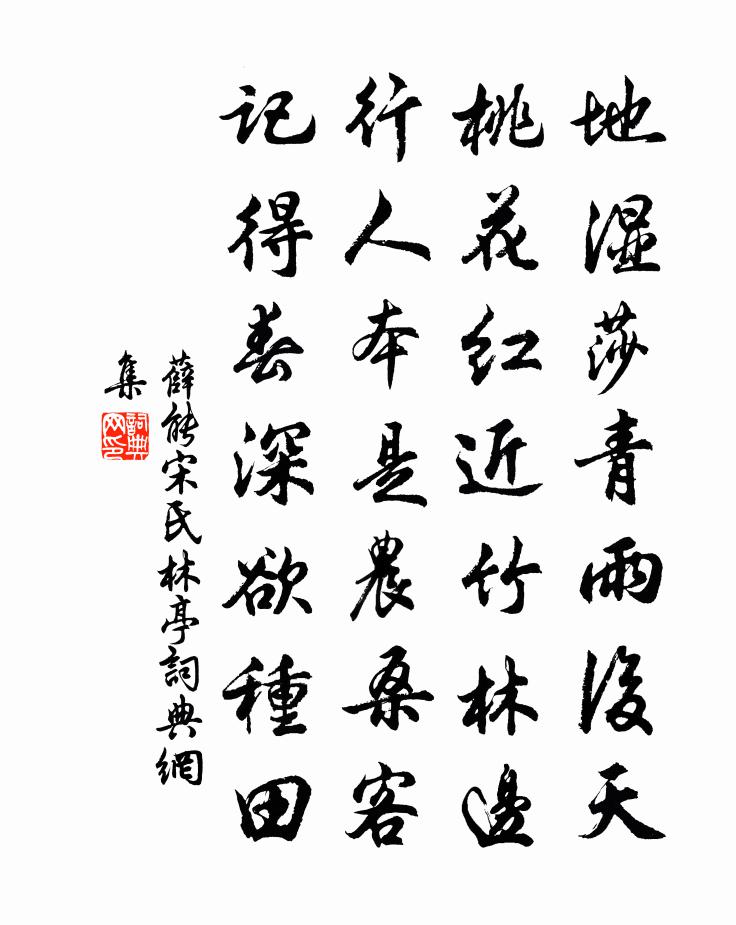 地湿莎青雨後天
桃花紅近竹林邊
行人本是農桑客
記得春深欲種田
薛能宋氏林亭詞典網
集
詞典
网印